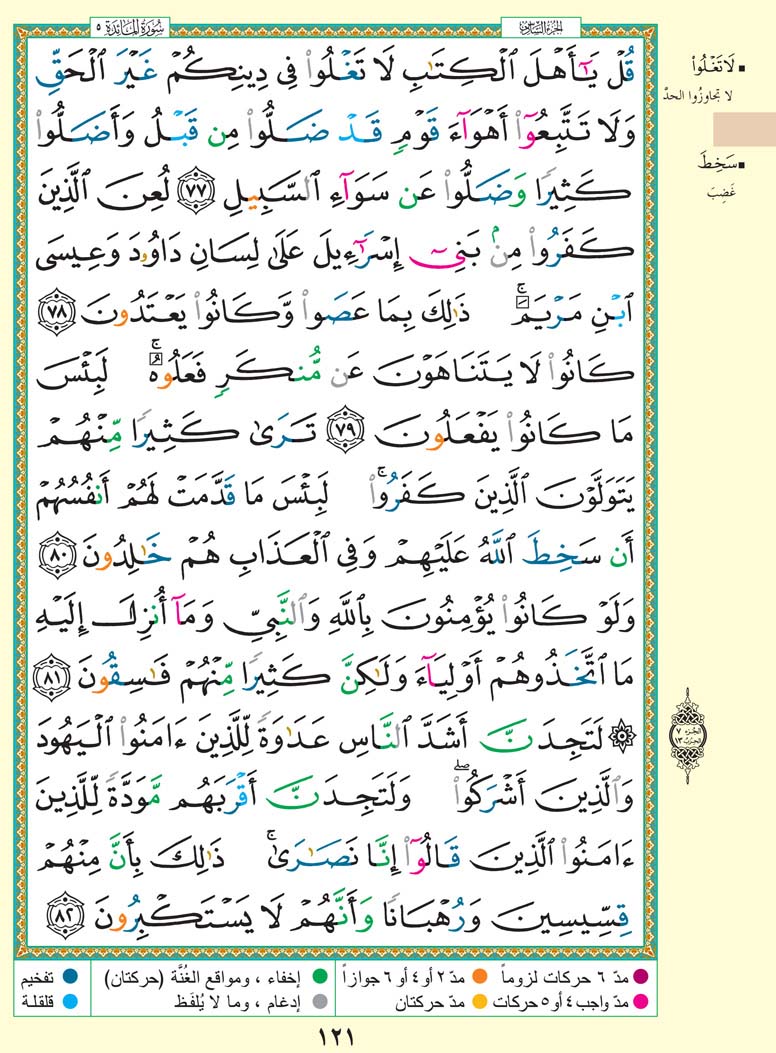 سُورَةُ المَائِدَة ٥
الجُزءُ السَّادِسُ
قُلْ يَٰٓأَهْلَ ٱلْكِتَٰبِ لَا تَغْلُوا۟ فِى دِينِكُمْ غَيْرَ ٱلْحَقِّ
وَلَا تَتَّبِعُوٓا۟ أَهْوَآءَ قَوْمٍ قَدْ ضَلُّوا۟ مِن قَبْلُ وَأَضَلُّوا۟
كَثِيرًا وَضَلُّوا۟ عَن سَوَآءِ ٱلسَّبِيلِ ٧٧ لُعِنَ ٱلَّذِينَ
كَفَرُوا۟ مِنۢ بَنِىٓ إِسْرَٰٓءِيلَ عَلَىٰ لِسَانِ دَاوُۥدَ وَعِيسَى
ٱبْنِ مَرْيَمَ ۚ ذَٰلِكَ بِمَا عَصَوا۟ وَّكَانُوا۟ يَعْتَدُونَ ٧٨
كَانُوا۟ لَا يَتَنَاهَوْنَ عَن مُّنكَرٍ فَعَلُوهُ ۚ لَبِئْسَ
مَا كَانُوا۟ يَفْعَلُونَ ٧٩ تَرَىٰ كَثِيرًا مِّنْهُمْ
يَتَوَلَّوْنَ ٱلَّذِينَ كَفَرُوا۟ ۚ لَبِئْسَ مَا قَدَّمَتْ لَهُمْ أَنفُسُهُمْ
أَن سَخِطَ ٱللَّهُ عَلَيْهِمْ وَفِى ٱلْعَذَابِ هُمْ خَٰلِدُونَ ٨٠
وَلَوْ كَانُوا۟ يُؤْمِنُونَ بِٱللَّهِ وَٱلنَّبِىِّ وَمَآ أُنزِلَ إِلَيْهِ
مَا ٱتَّخَذُوهُمْ أَوْلِيَآءَ وَلَٰكِنَّ كَثِيرًا مِّنْهُمْ فَٰسِقُونَ ٨١
۞ لَتَجِدَنَّ أَشَدَّ ٱلنَّاسِ عَدَٰوَةً لِّلَّذِينَ ءَامَنُوا۟ ٱلْيَهُودَ
وَٱلَّذِينَ أَشْرَكُوا۟ ۖ وَلَتَجِدَنَّ أَقْرَبَهُم مَّوَدَّةً لِّلَّذِينَ
ءَامَنُوا۟ ٱلَّذِينَ قَالُوٓا۟ إِنَّا نَصَٰرَىٰ ۚ ذَٰلِكَ بِأَنَّ مِنْهُمْ
قِسِّيسِينَ وَرُهْبَانًا وَأَنَّهُمْ لَا يَسْتَكْبِرُونَ ٨٢
▪ لَا تَغْلُوا۟
لا تجاوزُوا الحدَّ
▪ سَخِطَ
غَضِبَ
الجُزء ٧
الحزب ١٣
مدّ ٦ حركات لزوماً ● مدّ ٢ أو ٤ أو ٦ جوازاً ● إخفاء ، ومواقع الغُنَّة (حركتان) ● تفخيم
مدّ واجب ٤ أو ٥ حركات ● مدّ حركتان ● إدغام ، وما لا يُلفَظ ● قلقلة
١٢١